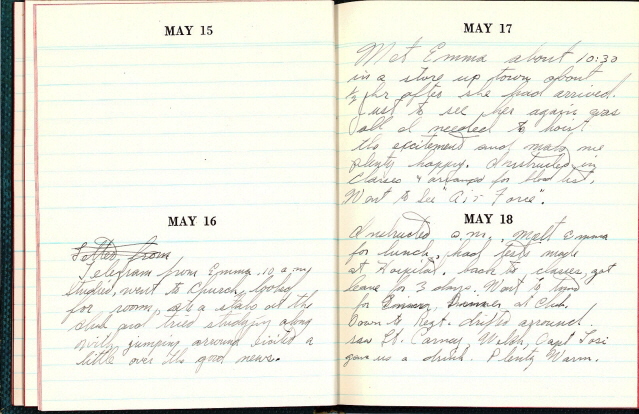 MAY 15
MAY 16
Letter from
Telegram from Emma 10 a.m.
Studied, went to Church, looked
for room, ate a steak at the
club and tried studying along
with jumping around inside a
little over the good news.
MAY 17
Met Emma about 10:30
in a store up town about
½ hr after she had arrived.
Just to see her again was
all I needed to hoist
the excitement and make me
plenty happy. Instructed in
Classes & arranged for blood test.
Went to see "Air Force".
MAY 18
Instructed a.m., Mett Emma
for lunch, had tests made
at Hospital, back to classes, got
leave for 3 days. Went to
for Dinner at Club.
Down to Regt. drifted around.
saw Lt. Carney, Welch, Capt
gave us a drink. Plenty Warm.